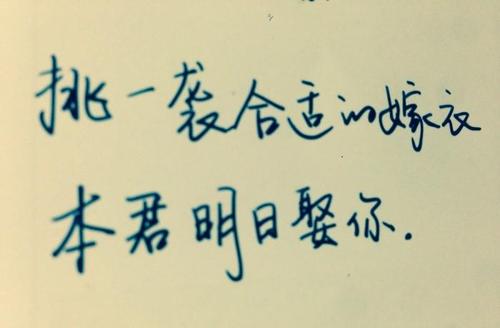 挑一袭合适的嫁衣
本君明日娶你.